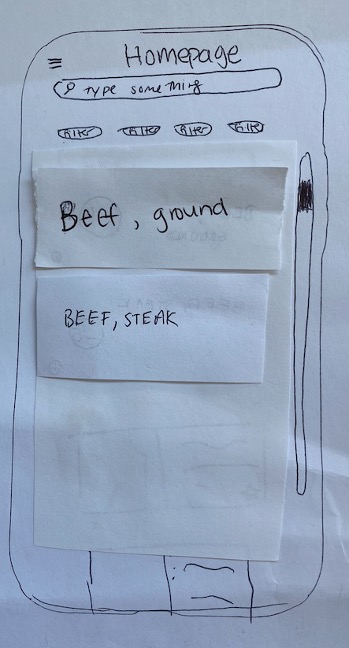 Homepage
Type something
filter filter filter filter
Beef, ground
BEEF, STEAK